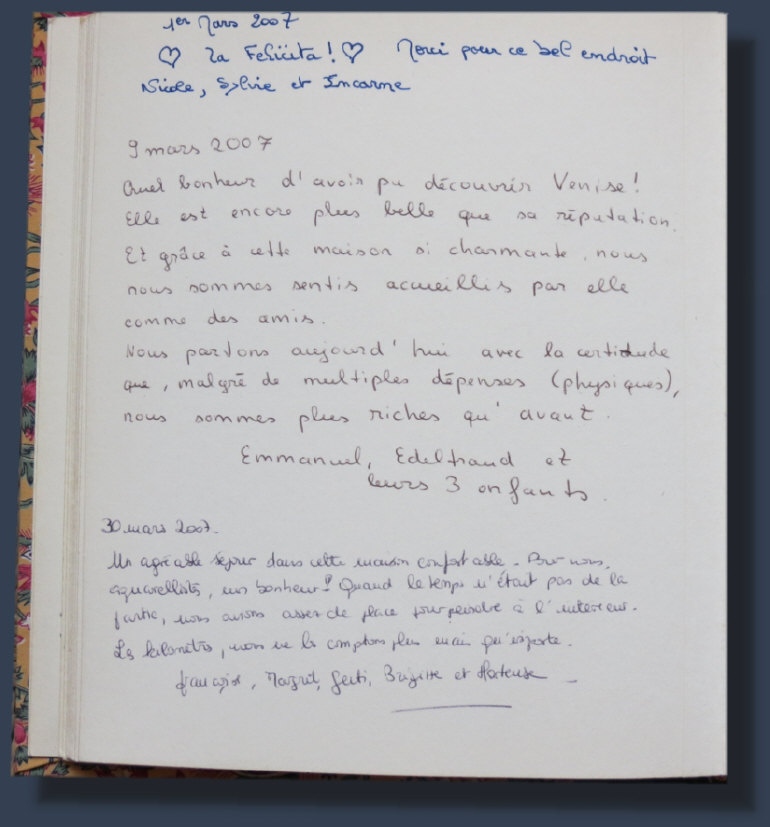 1er Mars 2007
♡ La Felicita ! ♡ Merci pour ce bel endroit
Nicole, Sylvie et Incarne
9 mars 2007
Quel bonheur d'avoir pu découvrir Venise !
Elle est encore plus belle que sa réputation.
Et grâce à cette maison si charmante, nous
nous sommes sentis accueillis par elle
comme des amis.
Nous partons aujourd'hui avec la certitude
que, malgré de multiples dépenses (physiques),
nous sommes plus riches qu'avant.
Emmanuel, Edeltraud et
leurs 3 enfants.
30 mars 2007.
Un agréable séjour dans cette maison confortable. Pour nous,
aquarellistes, un bonheur ! Quand le temps n'était pas de la
partie, nous avions assez de place pour peindre à l'intérieur.
Les kilomètres, nous ne les comptons plus mais qu'importe.
Françoise, Gerti, Brigitte et Hortense